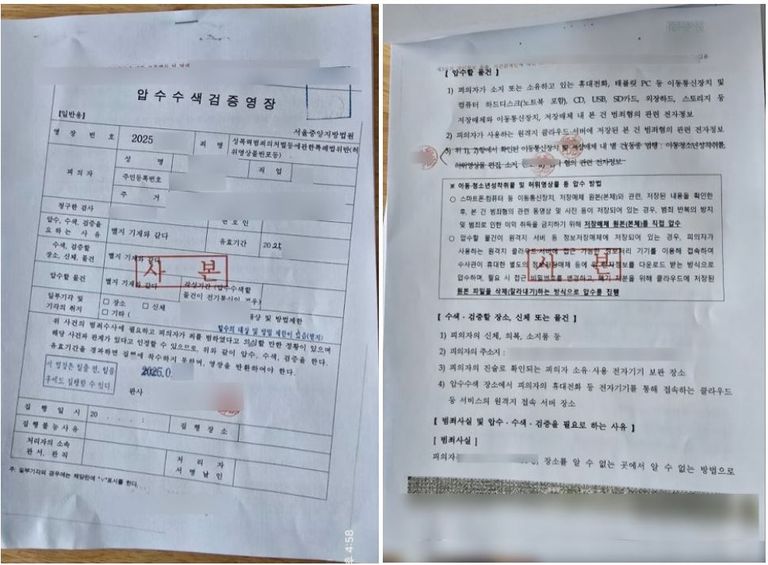 압수수색검증영장
[일반용]
서울중앙지방법원
영장 번호
2025
죄명
성폭력범죄의처벌등에관한특례법위반(허
위영상물반포등)
피의자
성명
직업
주민등록번호
주거
청구한 검사
변호인
압수, 수색, 검증을
요하는 사유
별지 기재와 같다
유효기간
수색, 검증할
장소, 신체, 물건
별지 기재와 같다
압수할 물건
별지 기재와 같다
작성기간(압수수색할
물건이 전기통신인 경우)
사 본
일부기각 및
기각의 취지
□ 장소
□ 신체
□ 기타 (
및 방법제한
압수의 대상 및 방법 제한이 있음(별지)
위 사건의 범죄수사에 필요하고 피의자가 죄를 범하였다고 의심할 만한 정황이 있으며
해당 사건과 관계가 있다고 인정할 수 있으므로, 위와 같이 압수, 수색, 검증을 한다.
유효기간을 경과하면 집행에 착수하지 못하며, 영장을 반환하여야 한다.
이 영장은 일출 전, 일몰
후에도 집행할 수 있다
2025.0
판사
집행일시
20 . . .
집행장소
집행불능사유
처리자의 소속
관서, 관직
처리자
서명날인
주: 일부기각의 경우에는 해당란에 "∨"표시를 한다.
4:58
[ 압수할 물건 ]
1) 피의자가 소지 또는 소유하고 있는 휴대전화, 태블릿 PC 등 이동통신장치 및
컴퓨터 하드디스크(노트북 포함), CD, USB, SD카드, 외장하드, 스토리지 등
저장매체와 이동통신장치, 저장매체 내 본 건 범죄혐의 관련 전자정보
2) 피의자가 사용하는 원격지 클라우드 서버에 저장된 본 건 범죄혐의 관련 전자정보
3) 위 1), 2)항에서 확인된 이동통신장치 및 저장매체 내 별 건(동종 범행 : 아동청소년성착취물,
허위영상물 편집, 소지, 혐의 관련 전자정보
※ 아동·청소년성착취물 및 허위영상물 등 압수 방법
○ 스마트폰·컴퓨터 등 이동통신장치, 저장매체 원본(본체)와 관련, 저장된 내용을 확인한
후, 본 건 범죄혐의 관련 동영상 및 사진 등이 저장되어 있는 경우, 범죄 반복의 방지
및 범죄로 인한 이익 취득을 금지하기 위해 저장매체 원본(본체)를 직접 압수
○ 압수할 물건이 원격지 서버 등 정보저장매체에 저장되어 있는 경우, 피의자가
사용하는 원격지 클라우드 서버에 접근 가능한 정보처리 기기를 이용해 접속하여
수사관이 휴대한 별도의 정보저장매체 등에 전자정보를 다운로드 받는 방식으로
압수하며, 필요 시 접근 비밀번호를 변경하고 폐기 처분을 위해 클라우드에 저장된
원본 파일을 삭제(잘라내기)하는 방식으로 압수를 진행
사 본
[ 수색·검증할 장소, 신체 또는 물건 ]
1) 피의자의 신체, 의복, 소지품 등
2) 피의자의 주소지 :
3) 피의자의 진술로 확인되는 피의자 소유·사용 전자기기 보관 장소
4) 압수수색 장소에서 피의자의 휴대전화 등 전자기기를 통해 접속하는 클라우드
등 서비스의 원격지 접속 서버 장소
[ 범죄사실 및 압수·수색·검증을 필요로 하는 사유 ]
[ 범죄사실 ]
피의자 장소를 알 수 없는 곳에서 알 수 없는 방법으로